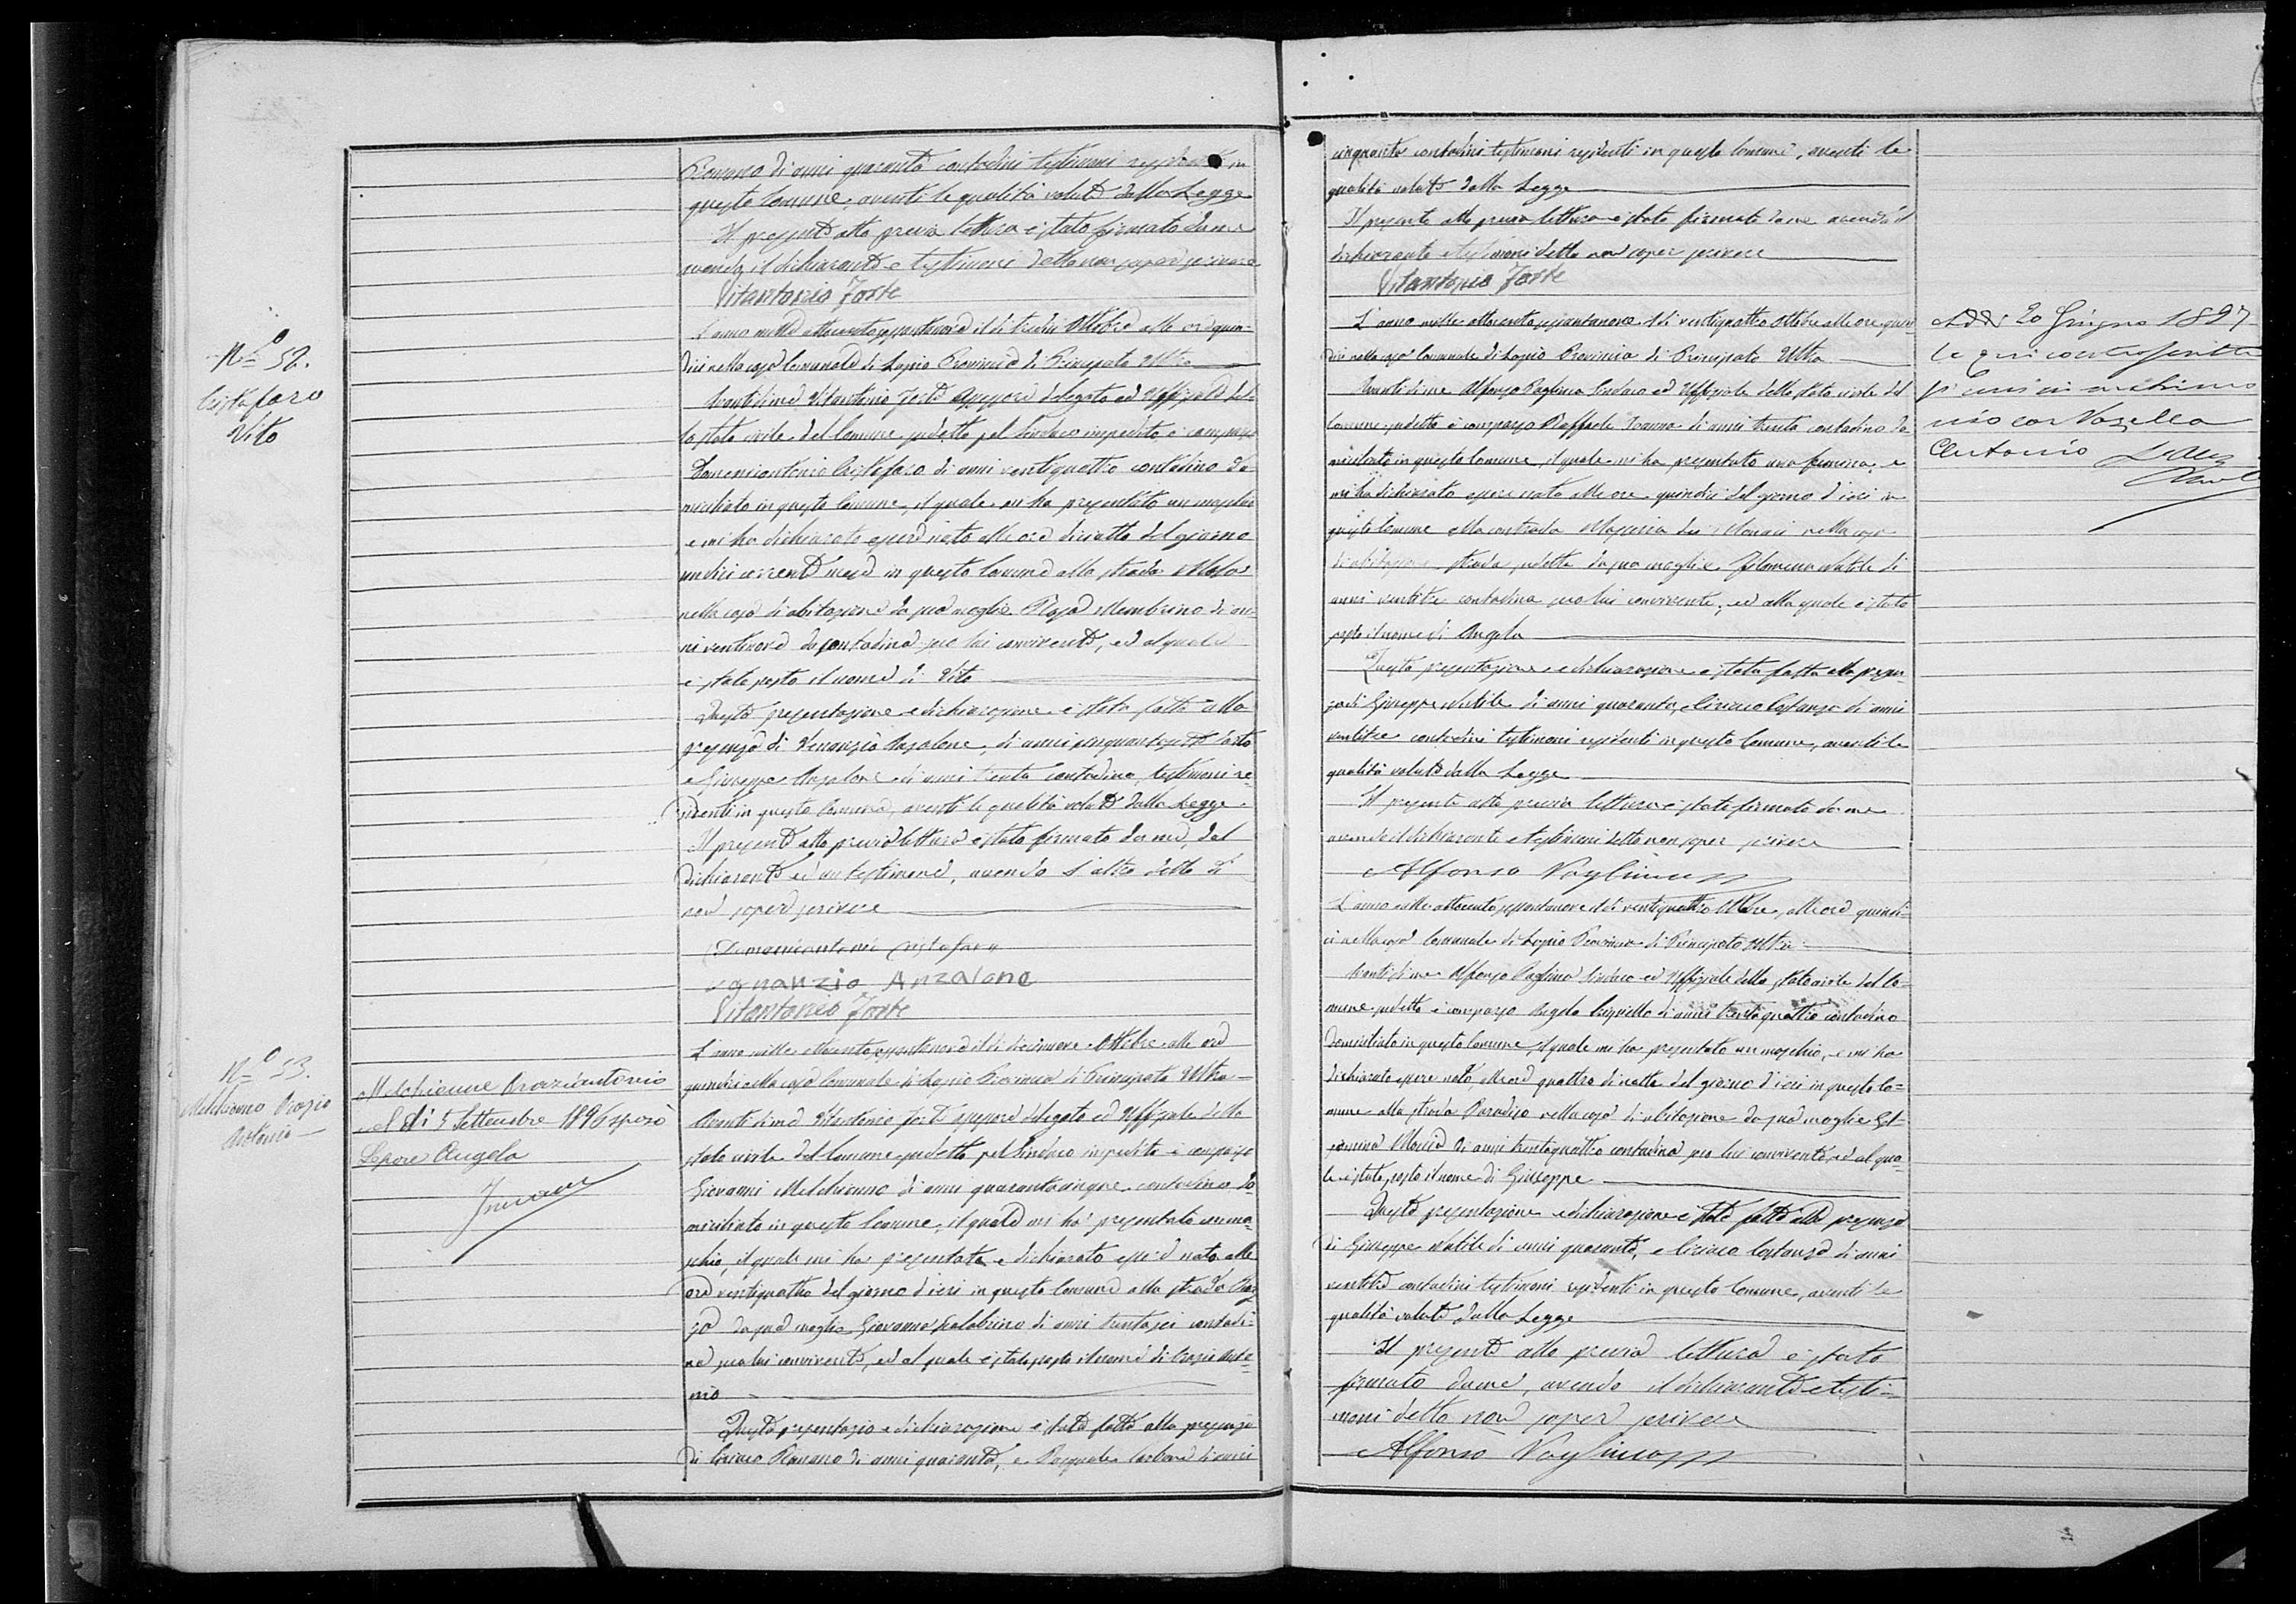 Romano di anni quaranta contadini testimoni residenti in
questo Comune, aventi le qualità volute dalla Legge
Il presente atto previa lettura è stato firmato da me
avendo il dichiarante e testimoni detto non sapere scrivere
Vitantonio Forte
N.º 52.
Cristofaro
Vito
L'anno mille ottocento settantanove il dì tredici Ottobre alle ore quin-
dici nella casa Comunale di Lapio Provincia di Principato Ultra
Avanti di me Vitantonio Forte Assessore delegato ed Uffiziale del-
lo stato civile del Comune sudetto pel Sindaco impedito, è comparso
Domenicantonio Cristofaro di anni ventiquattro contadino do
miciliato in questo Comune, il quale mi ha presentato un maschio
e mi ha dichiarato essere nato alle ore diciotto del giorno
undici corrente mese in questo Comune alla strada
nella casa di abitazione da sua moglie Rosa Membrino di an-
ni ventinove contadina seco lui convivente, ed al quale
è stato posto il nome di Vito
Questa presentazione e dichiarazione è stata fatta alla
presenza di Venanzio Anzalone, di anni sarto
e Giuseppe Anzalone di anni trenta contadino, testimoni re-
sidenti in questo Comune, aventi le qualità volute dalla Legge.
Il presente atto previa lettura è stato firmato da me, dal
dichiarante ed un testimone, avendo l'altro detto di
non sapere scrivere
Domenicantonio Cristofaro
Anzalone
Vitantonio Forte
N.º 53.
Melchionno Orazio
Antonio
Melchionne Orazioantonio
nel dì 5 Settembre 1896 sposò
Lepore Angela
L'anno mille ottocento settantanove il dì diecinove Ottobre alle ore
quindici nella casa Comunale di Lapio Provincia di Principato Ultra
Avanti di me Vitantonio Forte Assessore delegato ed Uffiziale dello
stato civile del Comune sudetto pel Sindaco impedito è comparso
Giovanni Melchionno di anni quarantacinque contadino do
miciliato in questo Comune, il quale mi ha presentato un ma-
schio, il quale mi ha presentato e dichiarato essere nato alle
ore ventiquattro del giorno d'ieri in questo Comune alla strada
da sua moglie Giovanna Calabrese di anni trentasei contadi-
na seco lui convivente, ed al quale è stato posto il nome di Orazio Anto-
nio
Questa presentazio e dichiarazione è stata fatta alla presenza
di Ciriaco Romano di anni quaranta, e Pasquale Carbone di anni
cinquanta contadini testimoni residenti in questo Comune, aventi le
qualità volute dalla Legge
Il presente atto previa lettura è stato firmato da me avendo il
dichiarante e testimoni detto non saper scrivere
Vitantonio Forte
L'anno mille ottocento settantanove il dì ventiquattro Ottobre alle ore quin
dici nella casa Comunale di Lapio Provincia di Principato Ultra
Avanti di me Alfonso Pagliuca Sindaco ed Uffiziale dello stato civile del
Comune sudetto è comparso Raffaele Ioanna di anni trenta contadino do
miciliato in questo Comune, il quale mi ha presentato una femina, e
mi ha dichiarato essere nata alle ore quindici del giorno d'ieri in
questo Comune alla contrada Masseria dei Monaci nella casa
di abitazione strada sudetta da sua moglie Filomena Natile di
anni ventitre contadina seco lui convivente, ed alla quale è stato
posto il nome di Angela
Questa presentazione e dichiarazione è stata fatta alla presen-
za di Giuseppe Natile di anni quaranta, Ciriaco Costanza di anni
ventitre contadini testimoni residenti in questo Comune, aventi le
qualità volute dalla Legge
Il presente atto previa lettura è stato firmato da me
avendo il dichiarante e testimoni detto non saper scrivere
Alfonso Pagliuca
Addì 20 Giugno 1897
la qui controscritta
si unì in matrimo
nio con Vozella
Antonio
L'anno mille ottocento settantanove il dì ventiquattro Ottobre, alle ore quindi-
ci nella casa Comunale di Lapio Provincia di Principato Ultra
Avanti di me Alfonso Pagliuca Sindaco ed Uffiziale dello stato civile del Co-
mune sudetto è comparso Angelo di anni trentaquattro contadino
domiciliato in questo Comune, il quale mi ha presentato un maschio, e mi ha
dichiarato essere nato, alle ore quattro di notte del giorno d'ieri in questo Co-
mune alla strada Paradiso nella casa di abitazione da sua moglie Gel-
somina di anni trentaquattro contadina seco lui convivente, ed al qua-
le è stato posto il nome di Giuseppe
Questa presentazione e dichiarazione è stata fatta alla presenza
di Giuseppe Natile di anni quaranta, e Ciriaco Costanza di anni
ventitre contadini testimoni residenti in questo Comune, aventi le
qualità volute dalla Legge
Il presente atto previa lettura è stato
firmato da me, avendo il dichiarante e testi-
moni detto non sapere scrivere
Alfonso Pagliuca